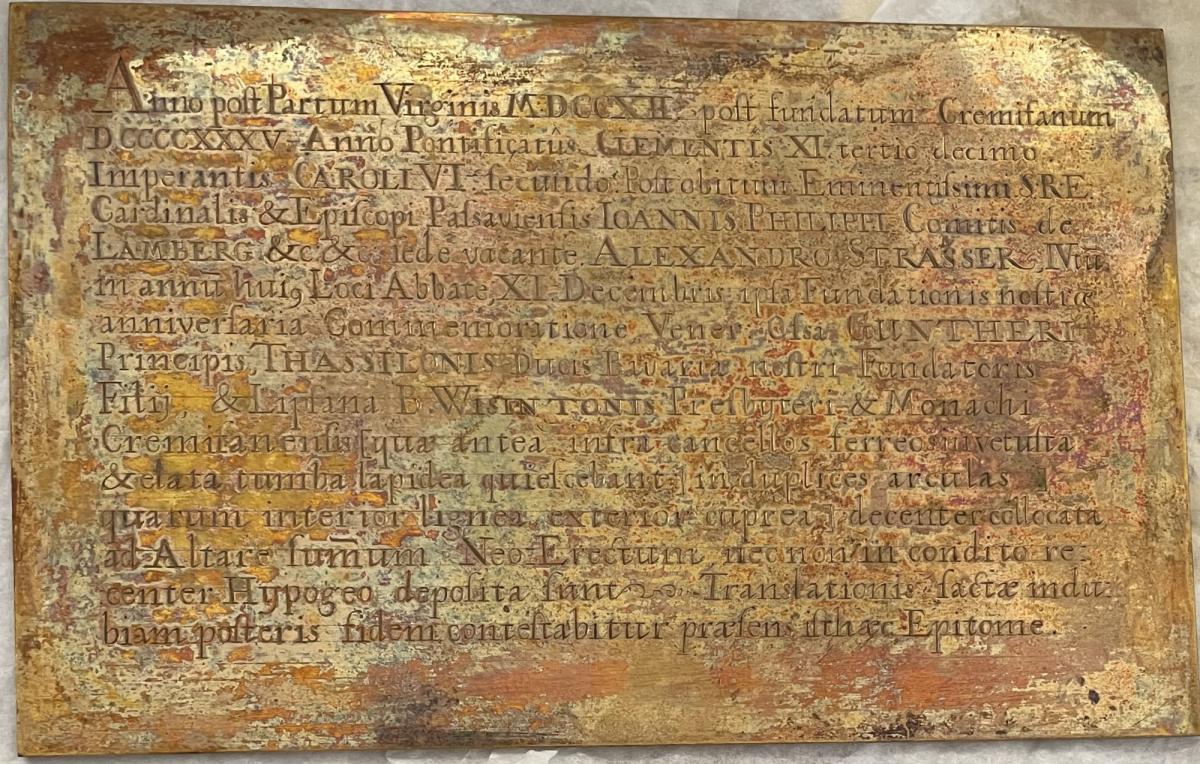 Anno poſt Partum Virginis M·DCCXII· poſt fundatum Cremiſanum
DCCCCXXXV· Anno Pontificatûs CLEMENTIS XI· tertio decimo
Imperantis CAROLI VI· ſecundo Poſt obitum Eminentiſsimi S.R.E.
Cardinalis & Epiſcopi Paſsavienſis IOANNIS PHILIPPI Comitis de
LAMBERG &c &c ſede vacante ALEXANDRO STRASSER, IVtū
in annū huiꝰ Loci Abbate, XI· Decembris ipſa Fundationis noſtræ
anniverſaria Commemoratione Vener. Oſsa GUNTHERI
Principis THASSILONIS Ducis Bavariæ noſtri Fundatoris
Filij, & Lipſana B. WISINTONIS Presbyteri & Monachi
Cremiſanenſis [quæ antea infra cancellos ferreos in vetuſta
& elata tumba lapidea quieſcebant] in duplices arculas
quarum interior lignea exterior cuprea] decenter collocata
ad Altare ſum̄um Neo-Erectum nec non in condito re:
center Hypogeo depoſita ſunt Translationis factæ indu:
biam poſteris fidem conteſtabitur præſens iſthæc Epitome.